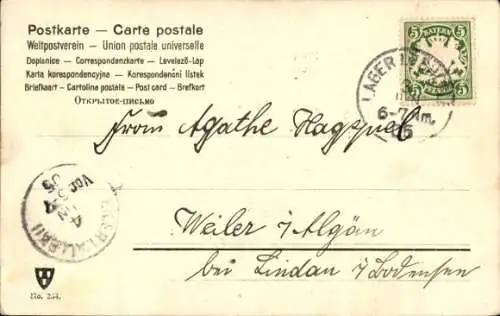 Postkarte — Carte postale
Weltpostverein – Union postale universelle
Dopisnice – Correspondenzkarte – Levelező-Lap
Karta korespondencyjna – Korespondenční lístek
Briefkaart – Cartolina postale – Post card – Brefkort
Открытое-письмо
BAYERN
5 5
PFENNIG
LAGER
6-7
Nm.
Fraŭ Agathe Hagspiel
Weiler i/Algäu
bei Lindau i/Bodensee
Vor.
4
No. 234.